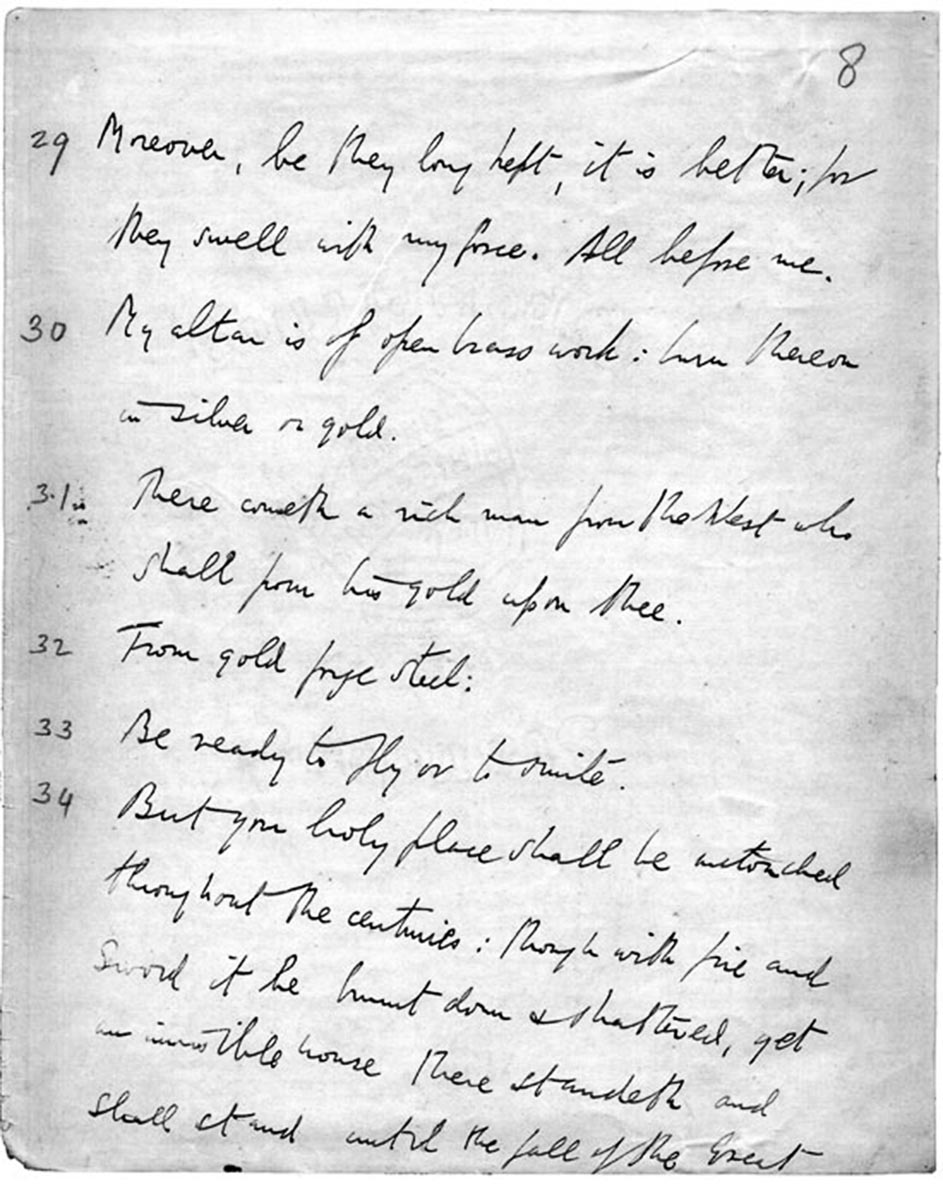 8
29 Moreover, be they long kept, it is better; for
they swell with my force. All before me.
30 My altar is of open brass work: burn thereon
in silver or gold.
31 There cometh a rich man from the West who
shall pour his gold upon thee.
32 From gold forge steel:
33 Be ready to fly or to smite.
34 But your holy place shall be untouched
throughout the centuries: though with fire and
sword it be burnt down & shattered, yet
an invisible house there standeth and
shall stand until the fall of the Great